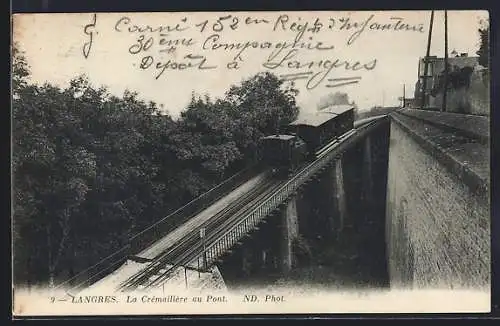 J. Carné 152en Regt d'Infanterie
30em Compagnie
Depot à Langres
9 - LANGRES. La Crémaillère au Pont. ND. Phot.